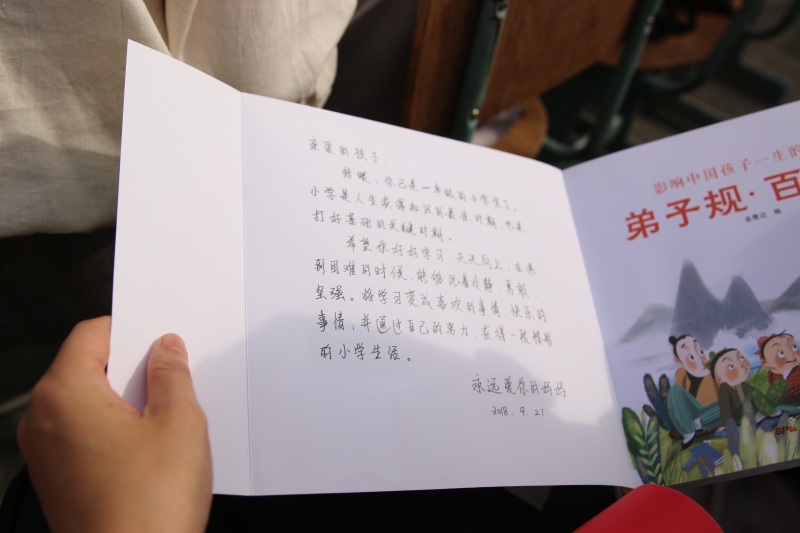 亲爱的孩子：
转眼，你已是一年级的小学生了。
小学是人生获得知识的最佳时期，也是
打好基础的关键时期。
希望你好好学习，天天向上，在遇
到困难的时候，能够沉着冷静、勇敢、
坚强。将学习变成喜欢的事情、快乐的
事情，并通过自己的努力，获得一段精彩
的小学生涯。
永远爱你的妈妈
2018.9.21
影响中国孩子一生的
弟子规·百
金青达 编